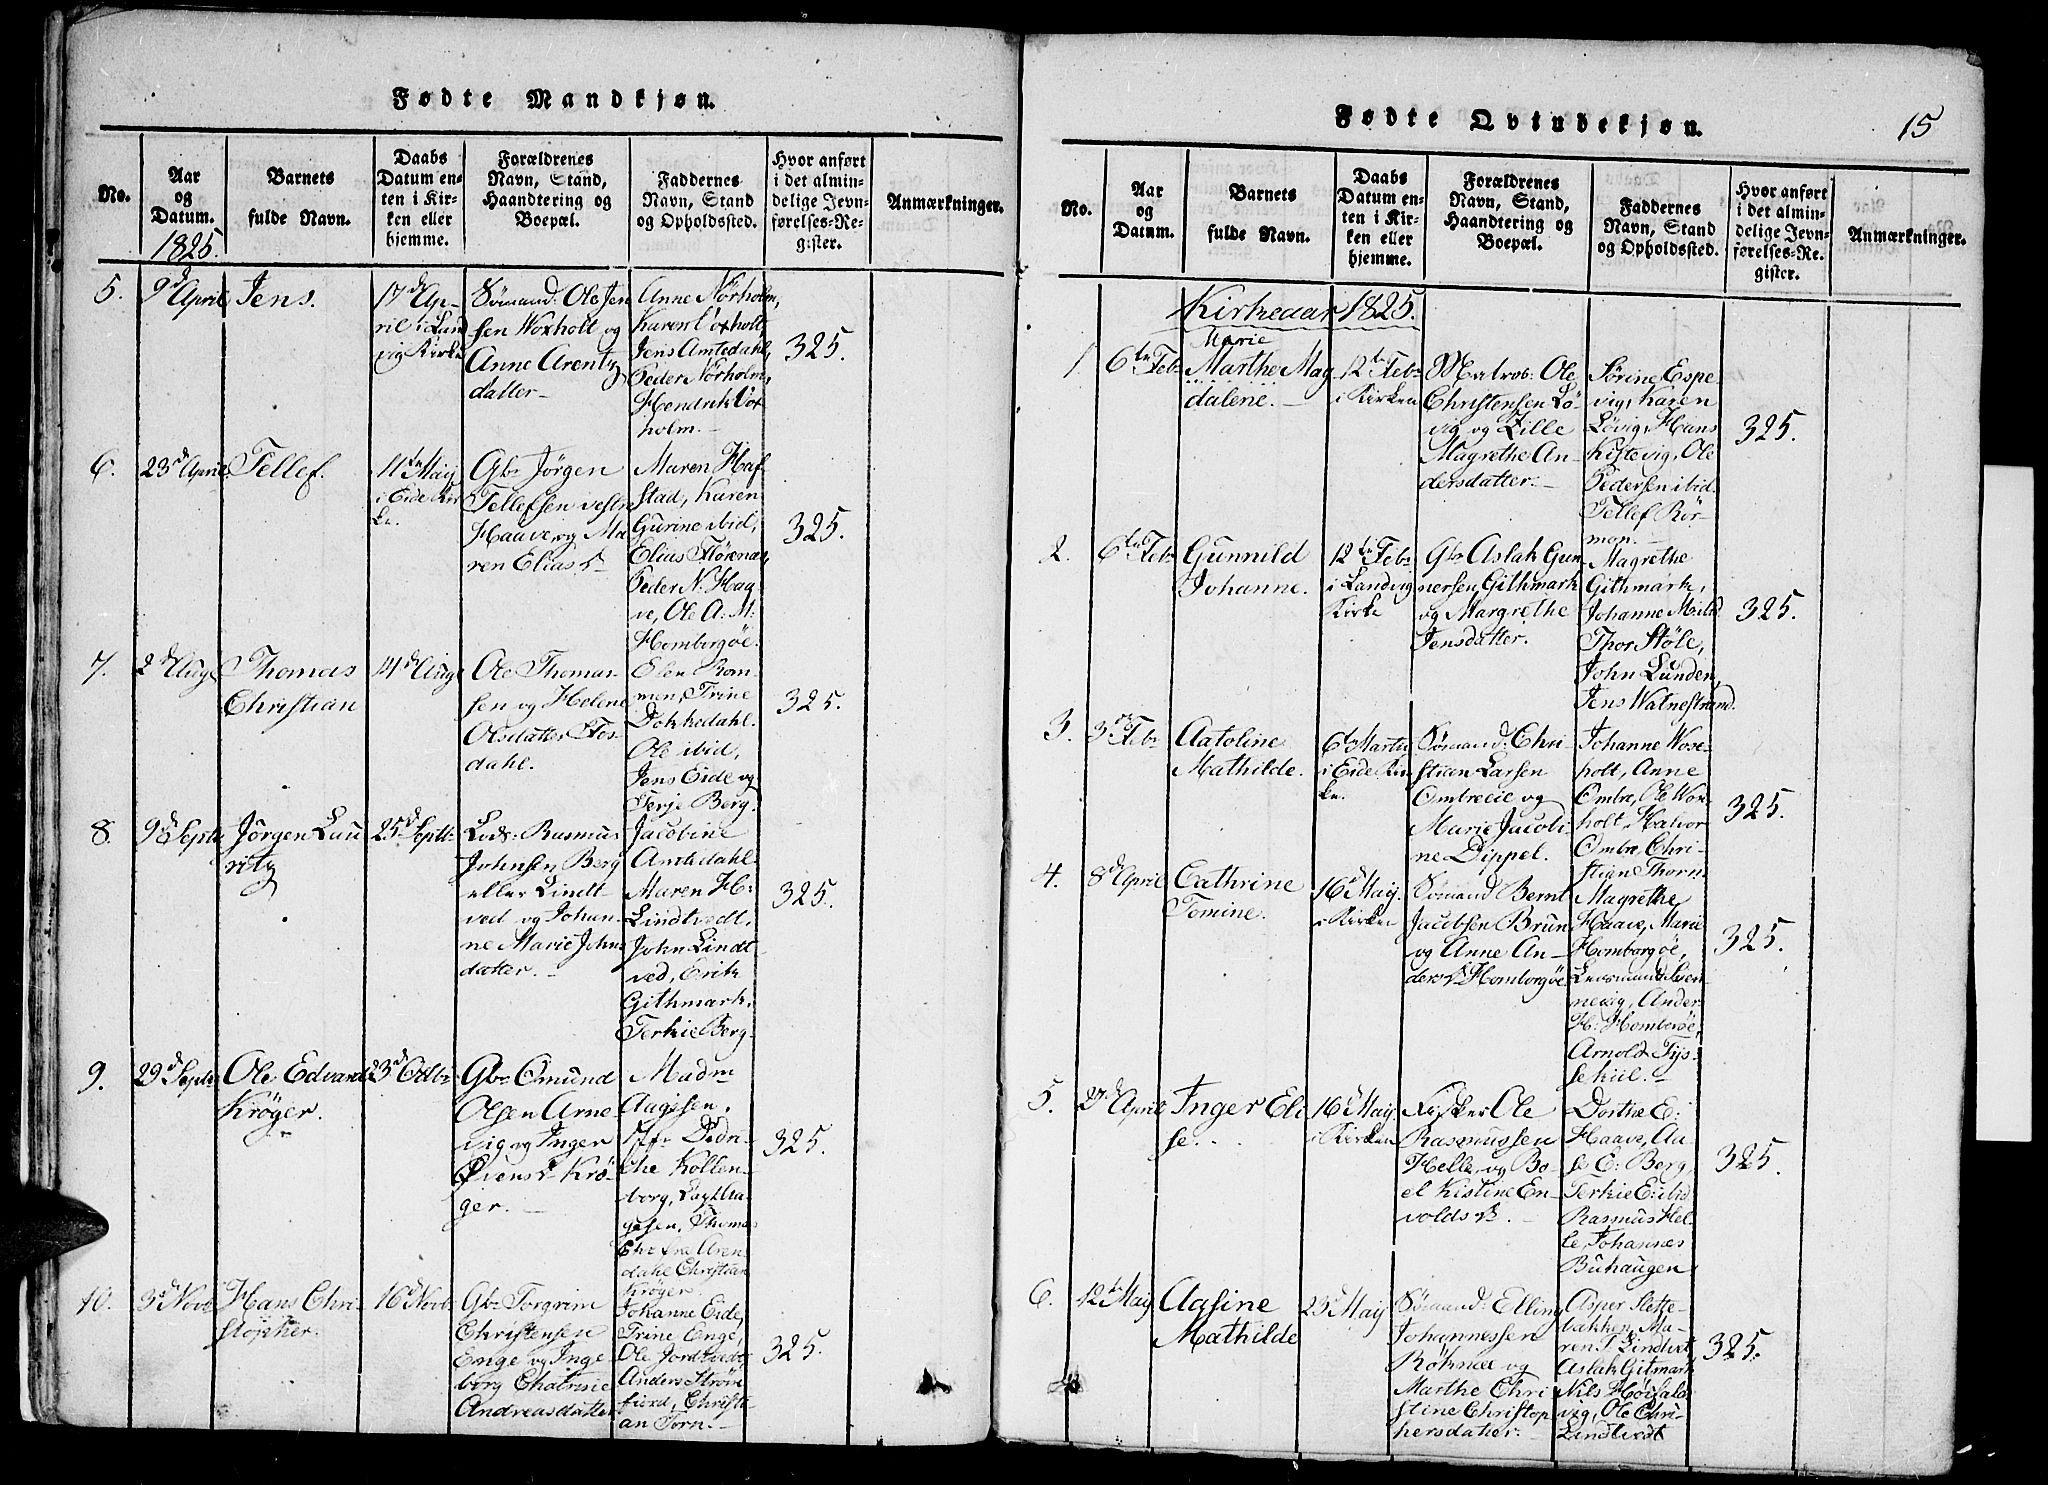 Fødte Mandkjøn.
No.
Aar
og
Datum.
1825.
Barnets
fulde Navn.
Daabs
Datum en-
ten i Kir-
ken eller
hjemme.
Forældrenes
Navn, Stand,
Haandtering og
Boepæl.
Faddernes
Navn, Stand
og Opholdssted.
Hvor anført
i det almin-
delige Jevn-
førelses-Re-
gister.
Anmærkninger.
5.
9d April
Jens.
17d Ap-
ril i Land
vig Kirke
Sømand: Ole Jen
sen Woxholt og
Anne Arentz
datter
Anne Nörholm,
Karen Voxholt,
Jens Amtedahl,
Peder Nörholm,
Hendrik Vox
holm.
325.
6.
23d April
Tellef.
11te Maij
i Eide Kir
ke.
Gbr Jörgen
Tellefsen vestre
Haave, og Ma
ren Elias D
Maren Haf
stad, Karen
Gurine ibid,
Elias Störenæs,
Peder N. Haa
ve, Ole A. M:
Homborgöe.
325.
7.
2d Aug
Thomas
Christian
14d Aug
Ole Thomas
sen og Helene
Olsdatter Fos-
dahl.
Elen Rom-
men, Trine
Dokkedahl.
Ole ibid,
Jens Eide og
Terje Berg.
325.
8.
9d Septr
Jörgen Lau
ritz
25d Septr
Lods: Rasmus
Johnsen Berg
eller Lindt
ved og Johan-
ne Marie Johns
datter.
Jacobine
Amtedahl
Maren H:
Lindtvedt,
John Lindt
ved, Erik
Githmark,
Terkie Berg
325.
9.
29d Septr
Ole Edvard
Kröger.
23d Octbr
Gbr Omund
Olsen Arne
vig og Inger
Svens D Krö-
ger.
Madm
Aagesen,
Jfr Didri-
che Kollen-
borg, Capt. Aa-
gesen, Thomas
Chr fra Aren-
dahl Christian
Kröger.
325.
10.
3d Novb
Hans Chri-
stopher.
16d Novb
Gbr Torgrim
Christensen
Enge og Inge
borg Chatrine
Andreasdatter
Johanne Eide,
Trine Enge,
Ole Jordtvedt,
Anders Ström
fiord, Christi-
an Torn.
325.
Fødte Qvindekjøn.
15
No.
Aar
og
Datum.
Barnets
fulde Navn.
Daabs
Datum en-
ten i Kir-
ken eller
hjemme.
Forældrenes
Navn, Stand,
Haandtering og
Boepæl.
Faddernes
Navn, Stand
og Opholdssted.
Hvor anført
i det almin-
delige Jevn-
førelses-Re-
gister.
Anmærkninger.
Kirkeaar 1825.
1
6te Febr
Marie
Marthe Mag
dalene.
12te Febr
i Kirken
Matros: Ole
Christensen Lö-
vig og Lille
Magrethe An-
dersdatter.
Sörine Espe
vig, Karen
Lövig, Hans
Kistevig, Ole
Pedersen ibid.
Tellef Rör-
mon.
325.
2.
6te Febr
Gunnild
Johanne.
12te Febr
i Landvig
Kirke
Gbr Aslak Gun
nersen Githmark
og Margrethe
Jensdatter.
Magrethe
Githmark,
Johanne
Thor Stöle,
John Lunden,
Jens Walnestrand.
325.
3.
3die Febr
Aatoline
Mathilde.
6te Marts
i Eide Kir
ke.
Sömand: Chri-
stian Larsen
Ombreeie og
Marie Jacobi-
ne Dippel.
Johanne Wose-
holt, Anne
Ombre, Ole Wox-
holt, Halvor
Ombre, Chri-
stian Thorn.
325.
4.
8d April
Cathrine
Tomine.
16d Maij
i Kirken
Sömand Bernt
Jacobsen Brun
og Anne An-
ders D Homborgöe
Magrethe
Haave, Marie
Homborgöe,
nevig, Anders
H: Homborgöe,
Arnold Tijs-
sekiil.
325.
5.
27d April
Inger Eli
se.
16d Maij
i Kirken
Fisker Ole
Rasmussen
Helle, og Bo-
el Kistine En-
volds D.
Dorthe E:
Haave, Aa-
se E: Berg,
Terkie E: ibid
Rasmus Hel-
le, Johannes
Buhaugen.
325.
6.
12te Maij
Aasine
Mathilde
23d Maij
Sömand: Elling
Johannessen
Röknæs og
Marthe Chri
stine Christop
hersdatter.
Asper Slette-
bakken, Ma-
ren T. Lindtvedt
Aslak Gitmark
Nils Höifals
vig, Ole Chri-
Lindtvedt
325.